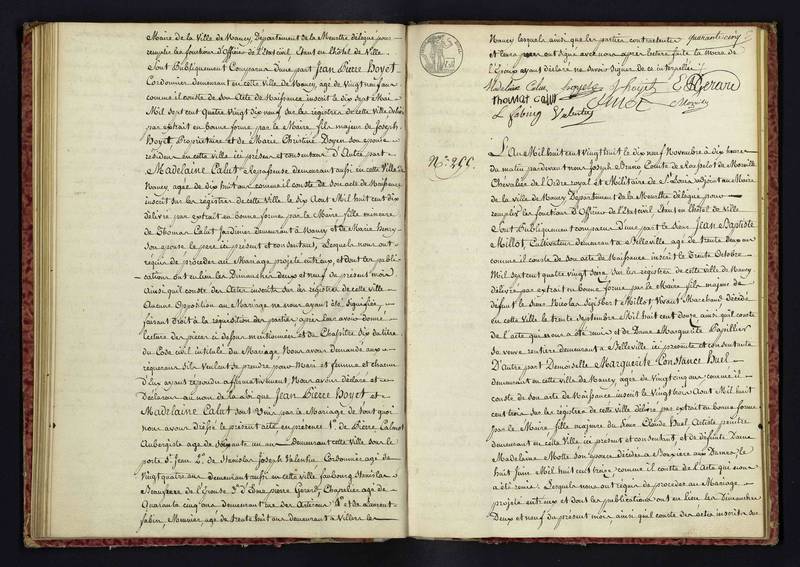 Maire de la Ville de Nancy Département de la Meurthe délégué pour
remplir les fonctions d'Officier de l'Etat civil, Etant en l'hôtel de Ville
Sont Publiquement Comparus D'une part Jean Pierre Hoyet
Cordonnier demeurant en cette ville de Nancy, age de Vingt neuf ans
comme il conste de son Acte de Naissance inscrit le dix sept Mai
Mil sept cent Quatre Vingt dix neuf sur les régistres de cette ville délivré
par extrait en bonne forme par le Maire fils majeur de Joseph
Hoyet Propriétaire et de Marie Christine Doyen son épouse
résidans en cette ville ici présens et consentans D'Autre part
Madelaine Calut Repasseuse demeurant aussi en cette Ville de
Nancy, agée de dix huit ans comme il conste de son acte de Naissance
inscrit sur les régistres de cette ville le Six Aout Mil huit cent dix
délivré par extrait en bonne forme par le Maire, fille mineure
de Thomas Calut Jardinier demeurant à Nancy et de Marie Henry
Son épouse le père ici présent et consentant, Lesquels nous ont
réquis de procéder au Mariage projeté entr'eux, et dont les publi-
cations ont eu lieu les Dimanches deux et neuf du présent mois
Ainsi qu'il conste des Actes inscrits sur les régistres de cette ville
Aucune Opposition au Mariage ne nous ayant été Signifiée,
faisant Droit à la réquisition des parties après leur avoir donné
lecture des pièces ci dessus mentionnées et du Chapitre Six du titre
du Code civil intitulé du Mariage, Nous avons demandé aux
réquérans S'ils Veulent se prendre pour Mari et femme et chacun
d'Eux ayant répondu affirmativement, Nous avons déclaré et
Déclarons au nom de la Loi que Jean Pierre Hoyet et
Madelaine Calut sont Unis par le Mariage de tout quoi
nous avons dressé le présent acte, en présence 1° de Pierre Calmot
Aubergiste age de Soixante un ans Demeurant cette Ville sous la
porte St. Jean 2°. de Stanislas Joseph Valentin Cordonnier agé de
Vingt quatre ans demeurant aussi en cette ville faubourg Stanislas
Beaufrere de l'Epouse 3° d'Edme pierre Gerard, Chapelier agé de
Quarante cinq ans demeurant rue des Artisans 4° et de Laurent
fabing, Menuisier, agé de trente huit ans demeurant à Villers les
Nancy lesquels ainsi que les parties contractantes quarante cinq
et leurs pères ont signé avec nous après lecture faite la mère de
l'Epoux ayant déclaré ne savoir Signer de ce interpellée
Madelaine Calut hoyet J hoyet E P Gerard
thomas Calut Calmot
L fabing Valentin
N°. 266.
L'An Mil huit cent Vingt huit le dix neuf Novembre à dix heures
du matin pardevant nous Joseph Bruno Comte de
Chevalier de l'Ordre royal et Militaire de St. Louis adjoint au Maire
de la ville de Nancy Département de la Meurthe délégué pour
remplir les fonctions d'Officier de l'Etat civil, Etant en l'hôtel de Ville
Sont Publiquement comparus D'une part le Sieur Jean Baptiste
Millot, Cultivateur demeurant à Belleville agé de trente deux ans
comme il conste de son acte de Naissance inscrit le trente Octobre
Mil sept cent quatre vingt seize, Sur les régistres de cette ville de Nancy
délivré par extrait en bonne forme par le Maire fils majeur de
défunt le Sieur Nicolas Sigisbert Millot Vivant Marchand décédé
en cette Ville le trente septembre Mil huit cent douze ainsi qu'il conste
de l'acte qui nous a été remis et de Dame Marguerite Papillier
Sa veuve rentière demeurant à Belleville ici présente et consentante
D'Autre part Demoiselle Marguerite Constance Huel
demeurant en cette ville de Nancy, agée de Vingt cinq ans comme il
conste de son acte de Naissance inscrit le Vingt trois Aout Mil huit
cent trois sur les régistres de cette Ville délivré par extrait en bonne forme
par le Maire, fille majeure du Sieur Claude Huel Artiste peintre
demeurant en cette Ville ici présent et consentant et de défunte Dame
Madelaine Motte son épouse décédée à le
huit Juin Mil huit cent treize comme il conste de l'Acte qui nous
a été remis. Lesquels nous ont réquis de procéder au Mariage
projeté entr'eux et dont les publications ont eu lieu les Dimanches
Deux et neuf du présent mois ainsi qu'il conste des actes inscrits sur